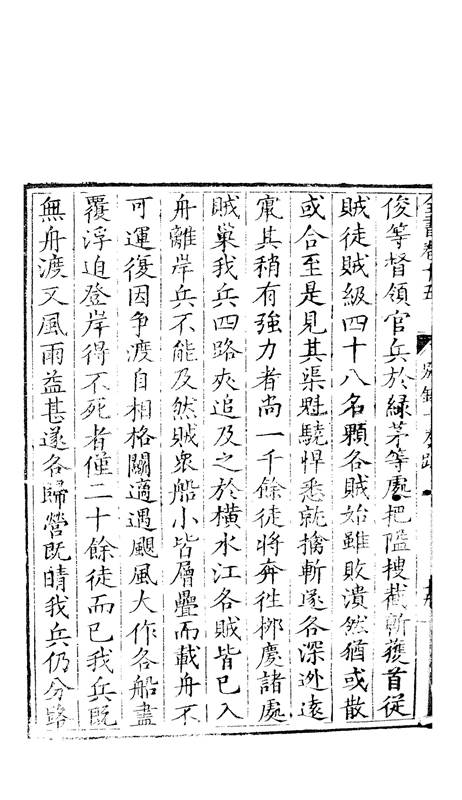 全書卷十五 別錄 奏疏
俊等督領官兵於緑茅等處把隘搜截斬獲首從
賊徒賊級四十八名顆各賊始雖敗潰然猶或散
或合至是見其渠魁驍悍悉就擒斬遂各深逃遠
竄其稍有強力者尚一千餘徒將奔徃栁慶諸處
賊巢我兵四路夾追及之於橫水江各賊皆已入
舟離岸兵不能及然賊衆船小皆層疊而載舟不
可運復因爭渡自相格鬭適遇颶風大作各船盡
覆浮迫登岸得不死者僅二十餘徒而已我兵既
無舟渡又風雨益甚遂各歸營既晴我兵仍分路